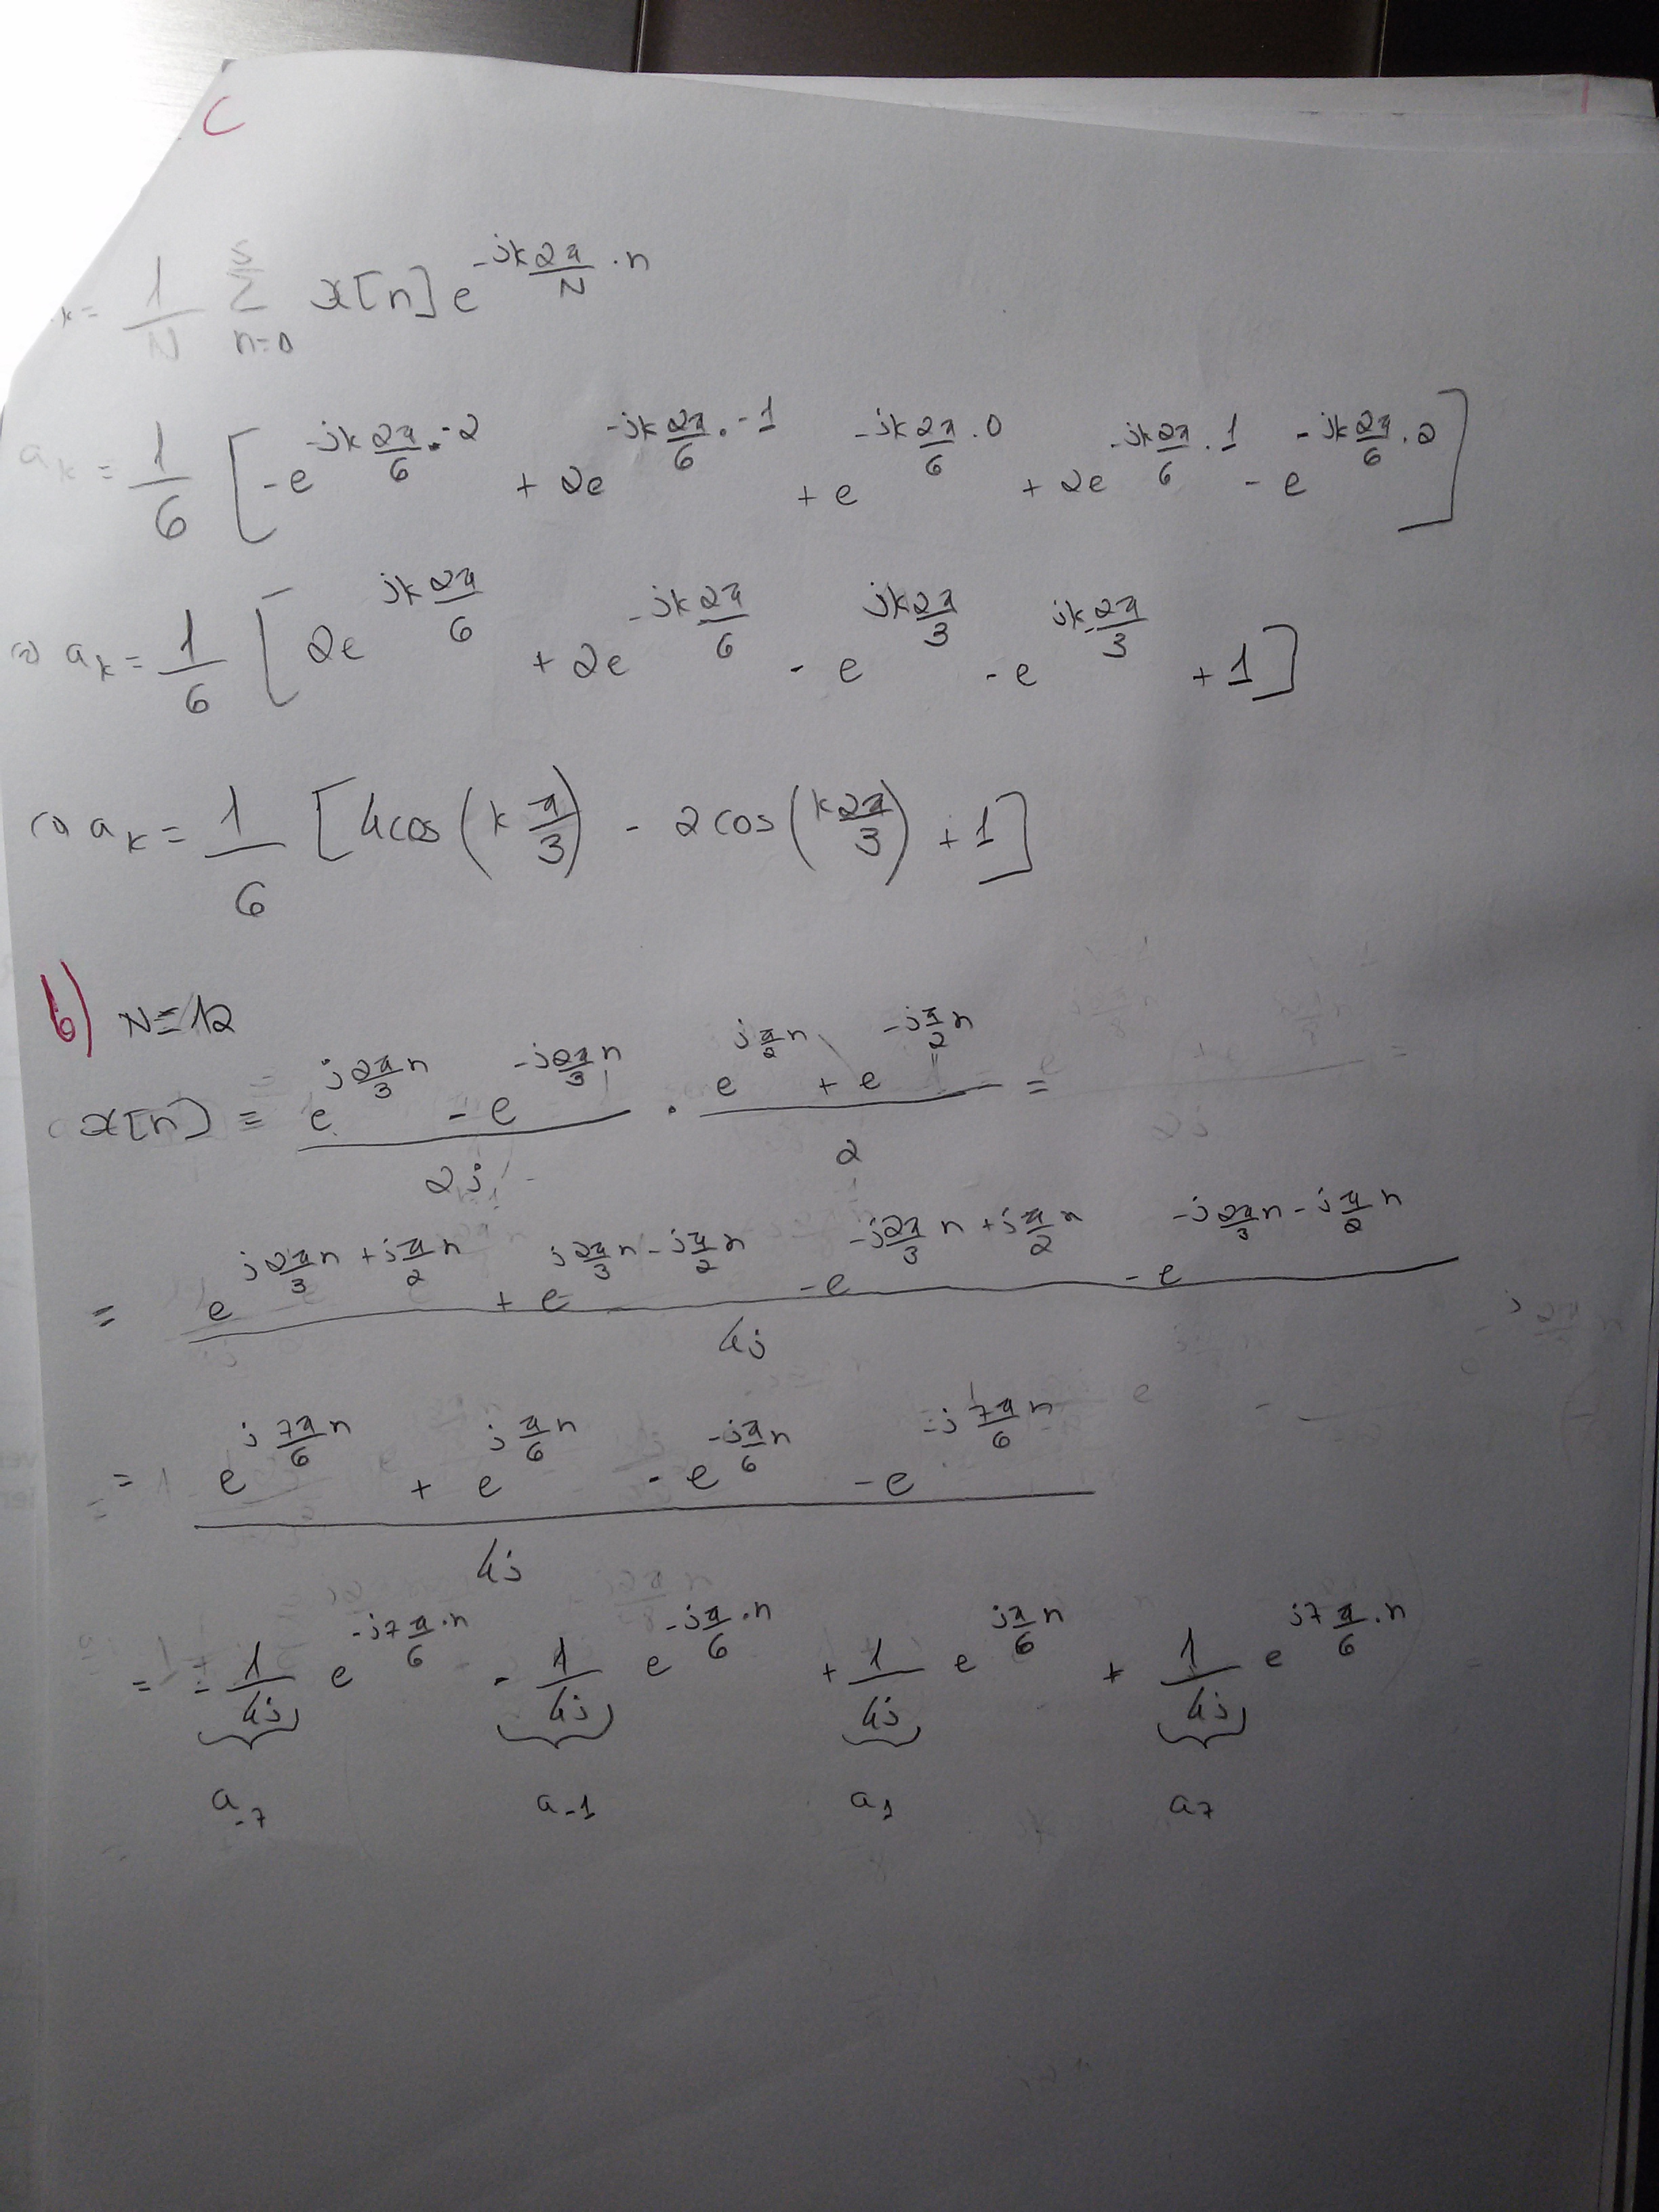 C
k = 1/N 5Σn=0 x[n] e^(-jk 2π/N · n)
a_k = 1/6 [ -e^(-jk 2π/6 · -2) + 2e^(-jk 2π/6 · -1) + e^(-jk 2π/6 · 0) + 2e^(-jk 2π/6 · 1) - e^(-jk 2π/6 · 2) ]
a_k = 1/6 [ 2e^(jk 2π/6) + 2e^(-jk 2π/6) - e^(jk 2π/3) - e^(jk 2π/3) + 1 ]
a_k = 1/6 [ 4cos(k π/3) - 2cos(k 2π/3) + 1 ]
b) N=12
x[n] = (e^(j 2π/3 n) - e^(-j 2π/3 n))/2j · (e^(j π/2 n) + e^(-j π/2 n))/2 =
= (e^(j 2π/3 n + j π/2 n) + e^(j 2π/3 n - j π/2 n) - e^(-j 2π/3 n + j π/2 n) - e^(-j 2π/3 n - j π/2 n))/4j
= (e^(j 7π/6 n) + e^(j π/6 n) - e^(-j π/6 n) - e^(-j 7π/6 n))/4j
= - 1/4j e^(-j7 π/6 · n) - 1/4j e^(-j π/6 · n) + 1/4j e^(j π/6 n) + 1/4j e^(j7 π/6 · n)
a_-7 a_-1 a_1 a_7